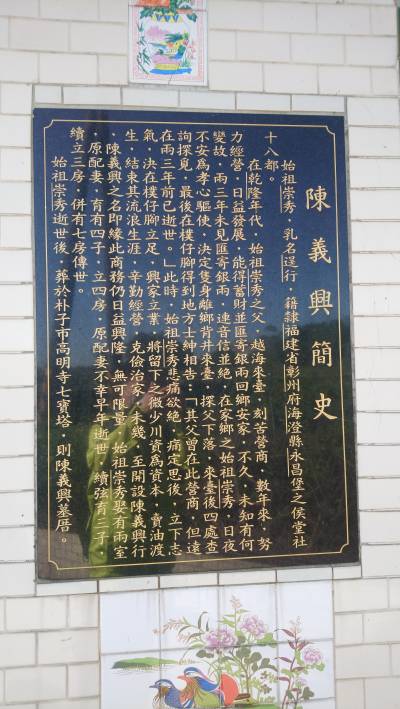 陳義興簡史
始祖崇秀，乳名逞行，籍隸福建省彰州府海澄縣永昌堡之侯堂社
十八都。
在乾隆年代，始祖崇秀之父，越海來臺，刻苦營商，數年來，努
力經營，日益發展，能得蓄財並匯寄銀兩回鄉安家，不久，未知有何
變故，兩三年未見匯寄銀兩，連音信並絕，在家鄉之始祖崇秀，日夜
不安爲孝心驅使，決定隻身離鄉背井來臺，探父下落，來臺後四處查
詢探覓，最後在樸仔腳得到地方士紳相告：「其父曾在此營商，但遠
在兩三年前已逝世。」此時，始祖崇秀悲痛欲絕，痛定思後，立下志
氣，決在樸仔腳立足，興家立業，將留下之微少川資爲資本，賣油渡
生，結束其流浪生涯，辛勤經營，克儉治家，未幾，至開設陳義興行
，陳義興之名即緣此商務仍日益興隆，無可限量，始祖崇秀娶有兩室
，原配妻，育有四子，立四房，原配妻不幸早年逝世，續弦育三子，
續立三房，併有七房傳世。
始祖崇秀逝世後，葬於朴子市高明寺七寶塔，則陳義興墓厝。